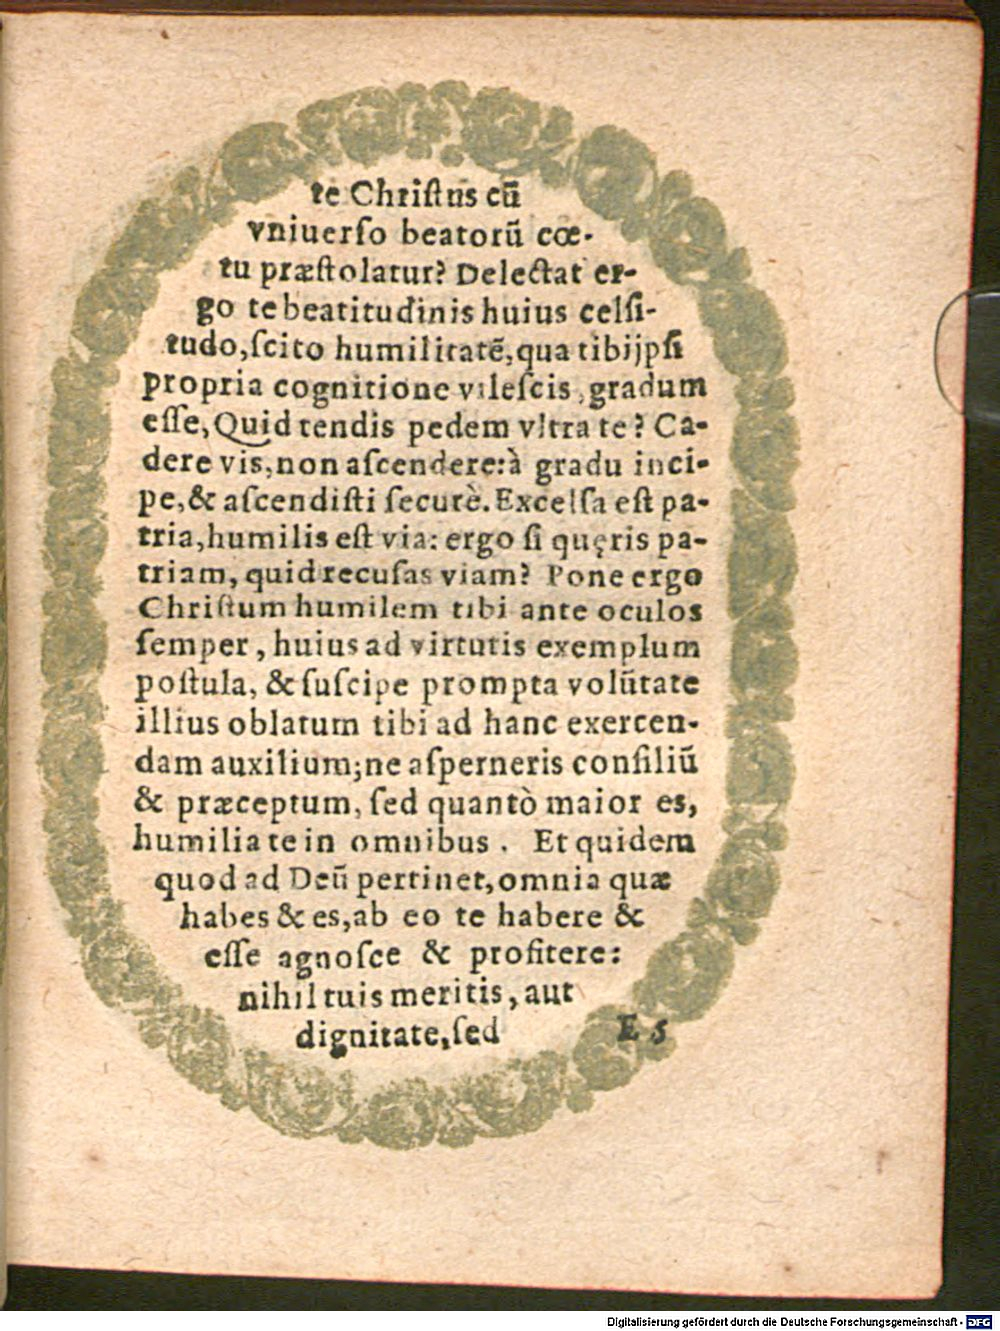 te Chriſtus cū
vniuerſo beatorū cœ-
tu præſtolatur? Delectat er-
go te beatitudinis huius celſi-
tudo, ſcito humilitatẽ, qua tibijpſi
propria cognitione vileſcis, gradum
eſſe, Quid tendis pedem vltra te? Ca-
dere vis, non aſcendere: à gradu inci-
pe, & aſcendiſti ſecurè. Excelſa eſt pa-
tria, humilis eſt via: ergo ſi quęris pa-
triam, quid recuſas viam? Pone ergo
Chriſtum humilem tibi ante oculos
ſemper, huius ad virtutis exemplum
poſtula, & ſuſcipe prompta volūtate
illius oblatum tibi ad hanc exercen-
dam auxilium; ne aſperneris conſiliū
& præceptum, ſed quantò maior es,
humilia te in omnibus. Et quidem
quod ad Deū pertinet, omnia quæ
habes & es, ab eo te habere &
eſſe agnoſce & profitere:
nihil tuis meritis, aut
dignitate, ſed
E 5
Digitalisierung gefördert durch die Deutsche Forschungsgemeinschaft - DFG